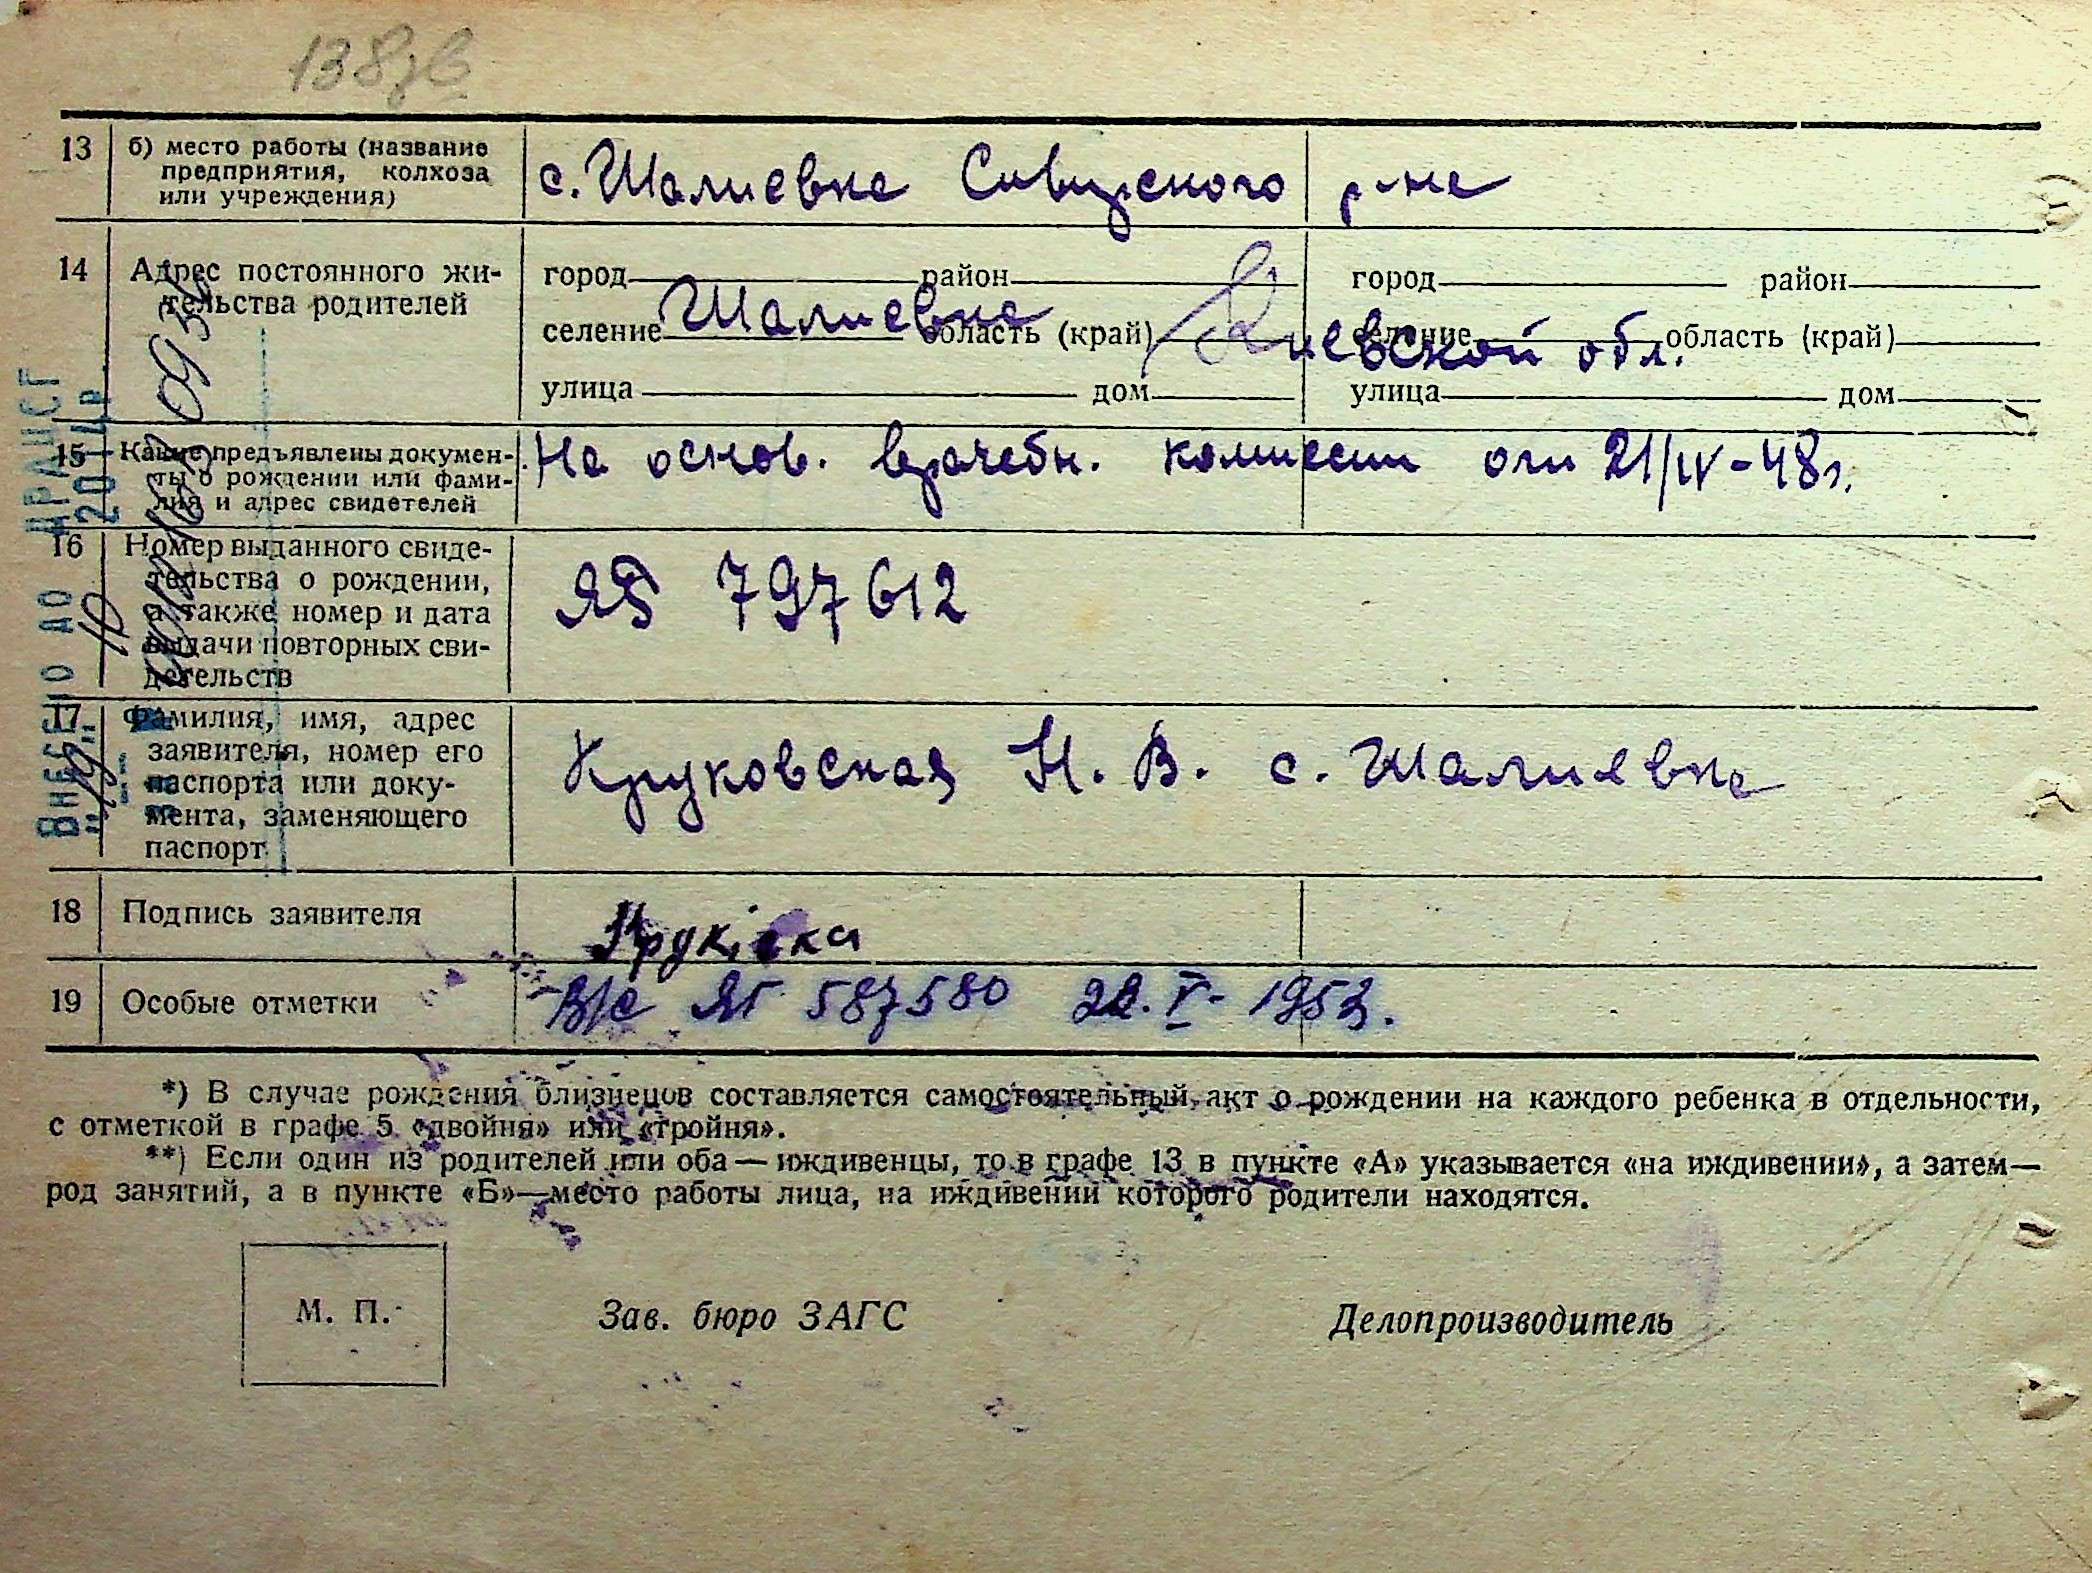 138зв
13 б) место работы (название предприятия, колхоза или учреждения)
с. Шалиевка Сквирского р-на
14 Адрес постоянного жи-
тельства родителей
город район город район
селение Шалиевка область (край) Киевской обл. селение область (край)
улица дом улица дом
15 Какие предъявлены докумен-
ты о рождении или фами-
лия и адрес свидетелей
На основ. врачебн. комиссии от 21/IV-48г.
16 Номер выданного свиде-
тельства о рождении,
а также номер и дата
выдачи повторных сви-
детельств
ЯБ 797612
17 Фамилия, имя, адрес
заявителя, номер его
паспорта или доку-
мента, заменяющего
паспорт
Круковская Н. В. с. Шалиевка
18 Подпись заявителя
19 Особые отметки
587580 22. V- 1953.
ВНЕСЕНО ДО ДРАЦСГ
"19" 10 201 р.
*) В случае рождения близнецов составляется самостоятельный акт о рождении на каждого ребенка в отдельности,
с отметкой в графе 5 «двойня» или «тройня».
**) Если один из родителей или оба — иждивенцы, то в графе 13 в пункте «А» указывается «на иждивении», а затем—
род занятий, а в пункте «Б»—место работы лица, на иждивении которого родители находятся.
М. П.
Зав. бюро ЗАГС
Делопроизводитель